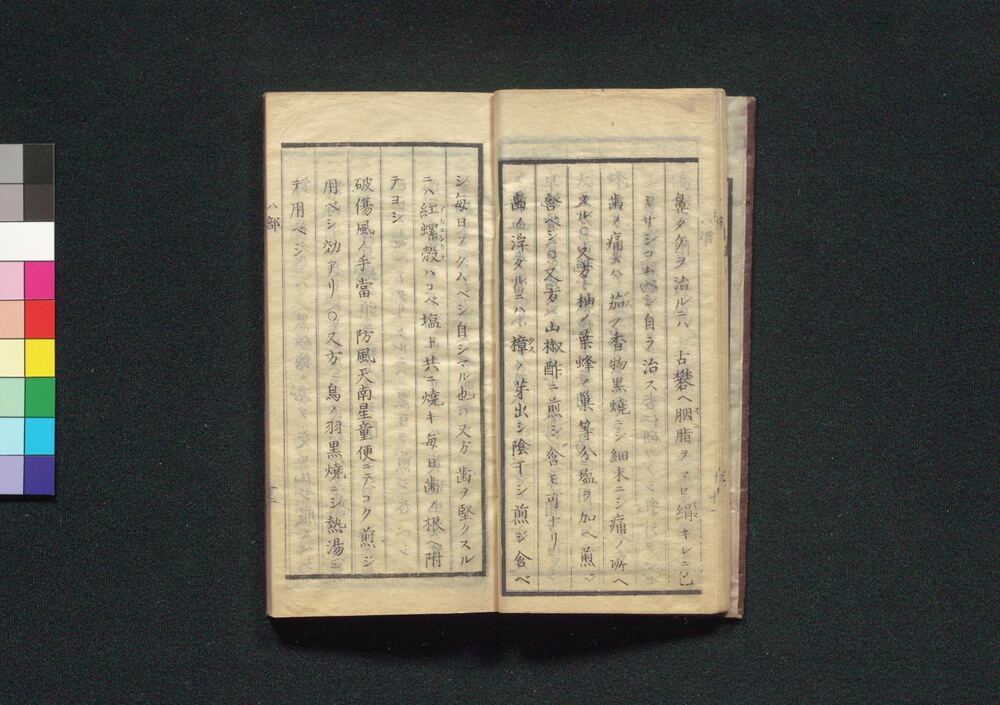 鼻タケヲ治ルニハ 古礬ヘ胭脂ヲマセ絹キレニ包
ミサシコムベシ自ラ治ス
歯ノ痛ニハ 茄ノ香物黒焼ニシ細末ニシ痛ノ所ヘ
ヌル〇又方 柚ノ葉蜂ノ巣等分塩ヲ加ヘ煎ジ
含ベシ〇又方 山椒酢ニ煎ジ含モ可ナリ
歯ノ浮タルニハ 樟ノ芽出シ陰干シ煎ジ含ベ
シ毎日フクムベシ自シマル也〇又方 歯ヲ堅クスル
ニハ紅螺殻ハコベ塩ト共ニ焼キ毎日歯ノ根ヘ附
テヨシ
破傷風ノ手當 防風天南星童便ニテコク煎ジ
用ベシ効アリ〇又方 鳥ノ羽黒焼ニシ熱湯ニ
テ用ベシ
ハ部